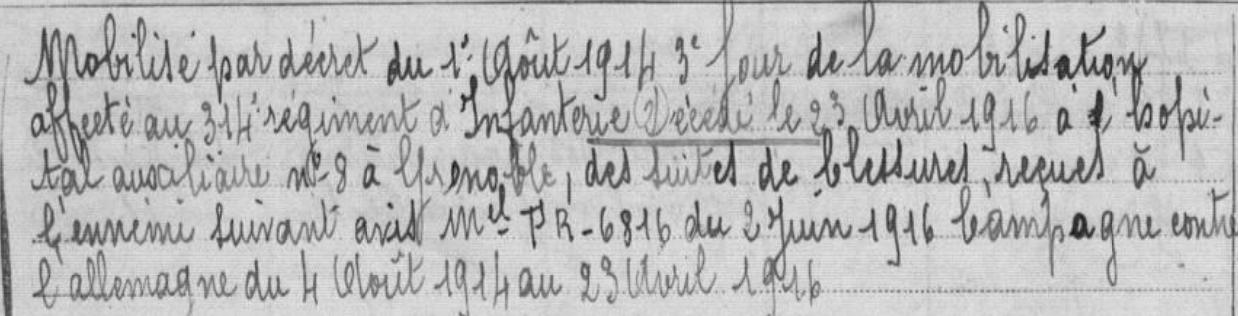 Mobilisé par décret du 1er Août 1914 3e jour de la mobilisation
affecté au 314e régiment d'Infanterie Décédé le 23 Avril 1916 à l'hopi-
tal auxiliaire no 8 à Grenoble, des suites de blessures reçues à
l'ennemi suivant avis Mel PR-6816 du 2 Juin 1916 Campagne contre
l'allemagne du 4 Août 1914 au 23 Avril 1916